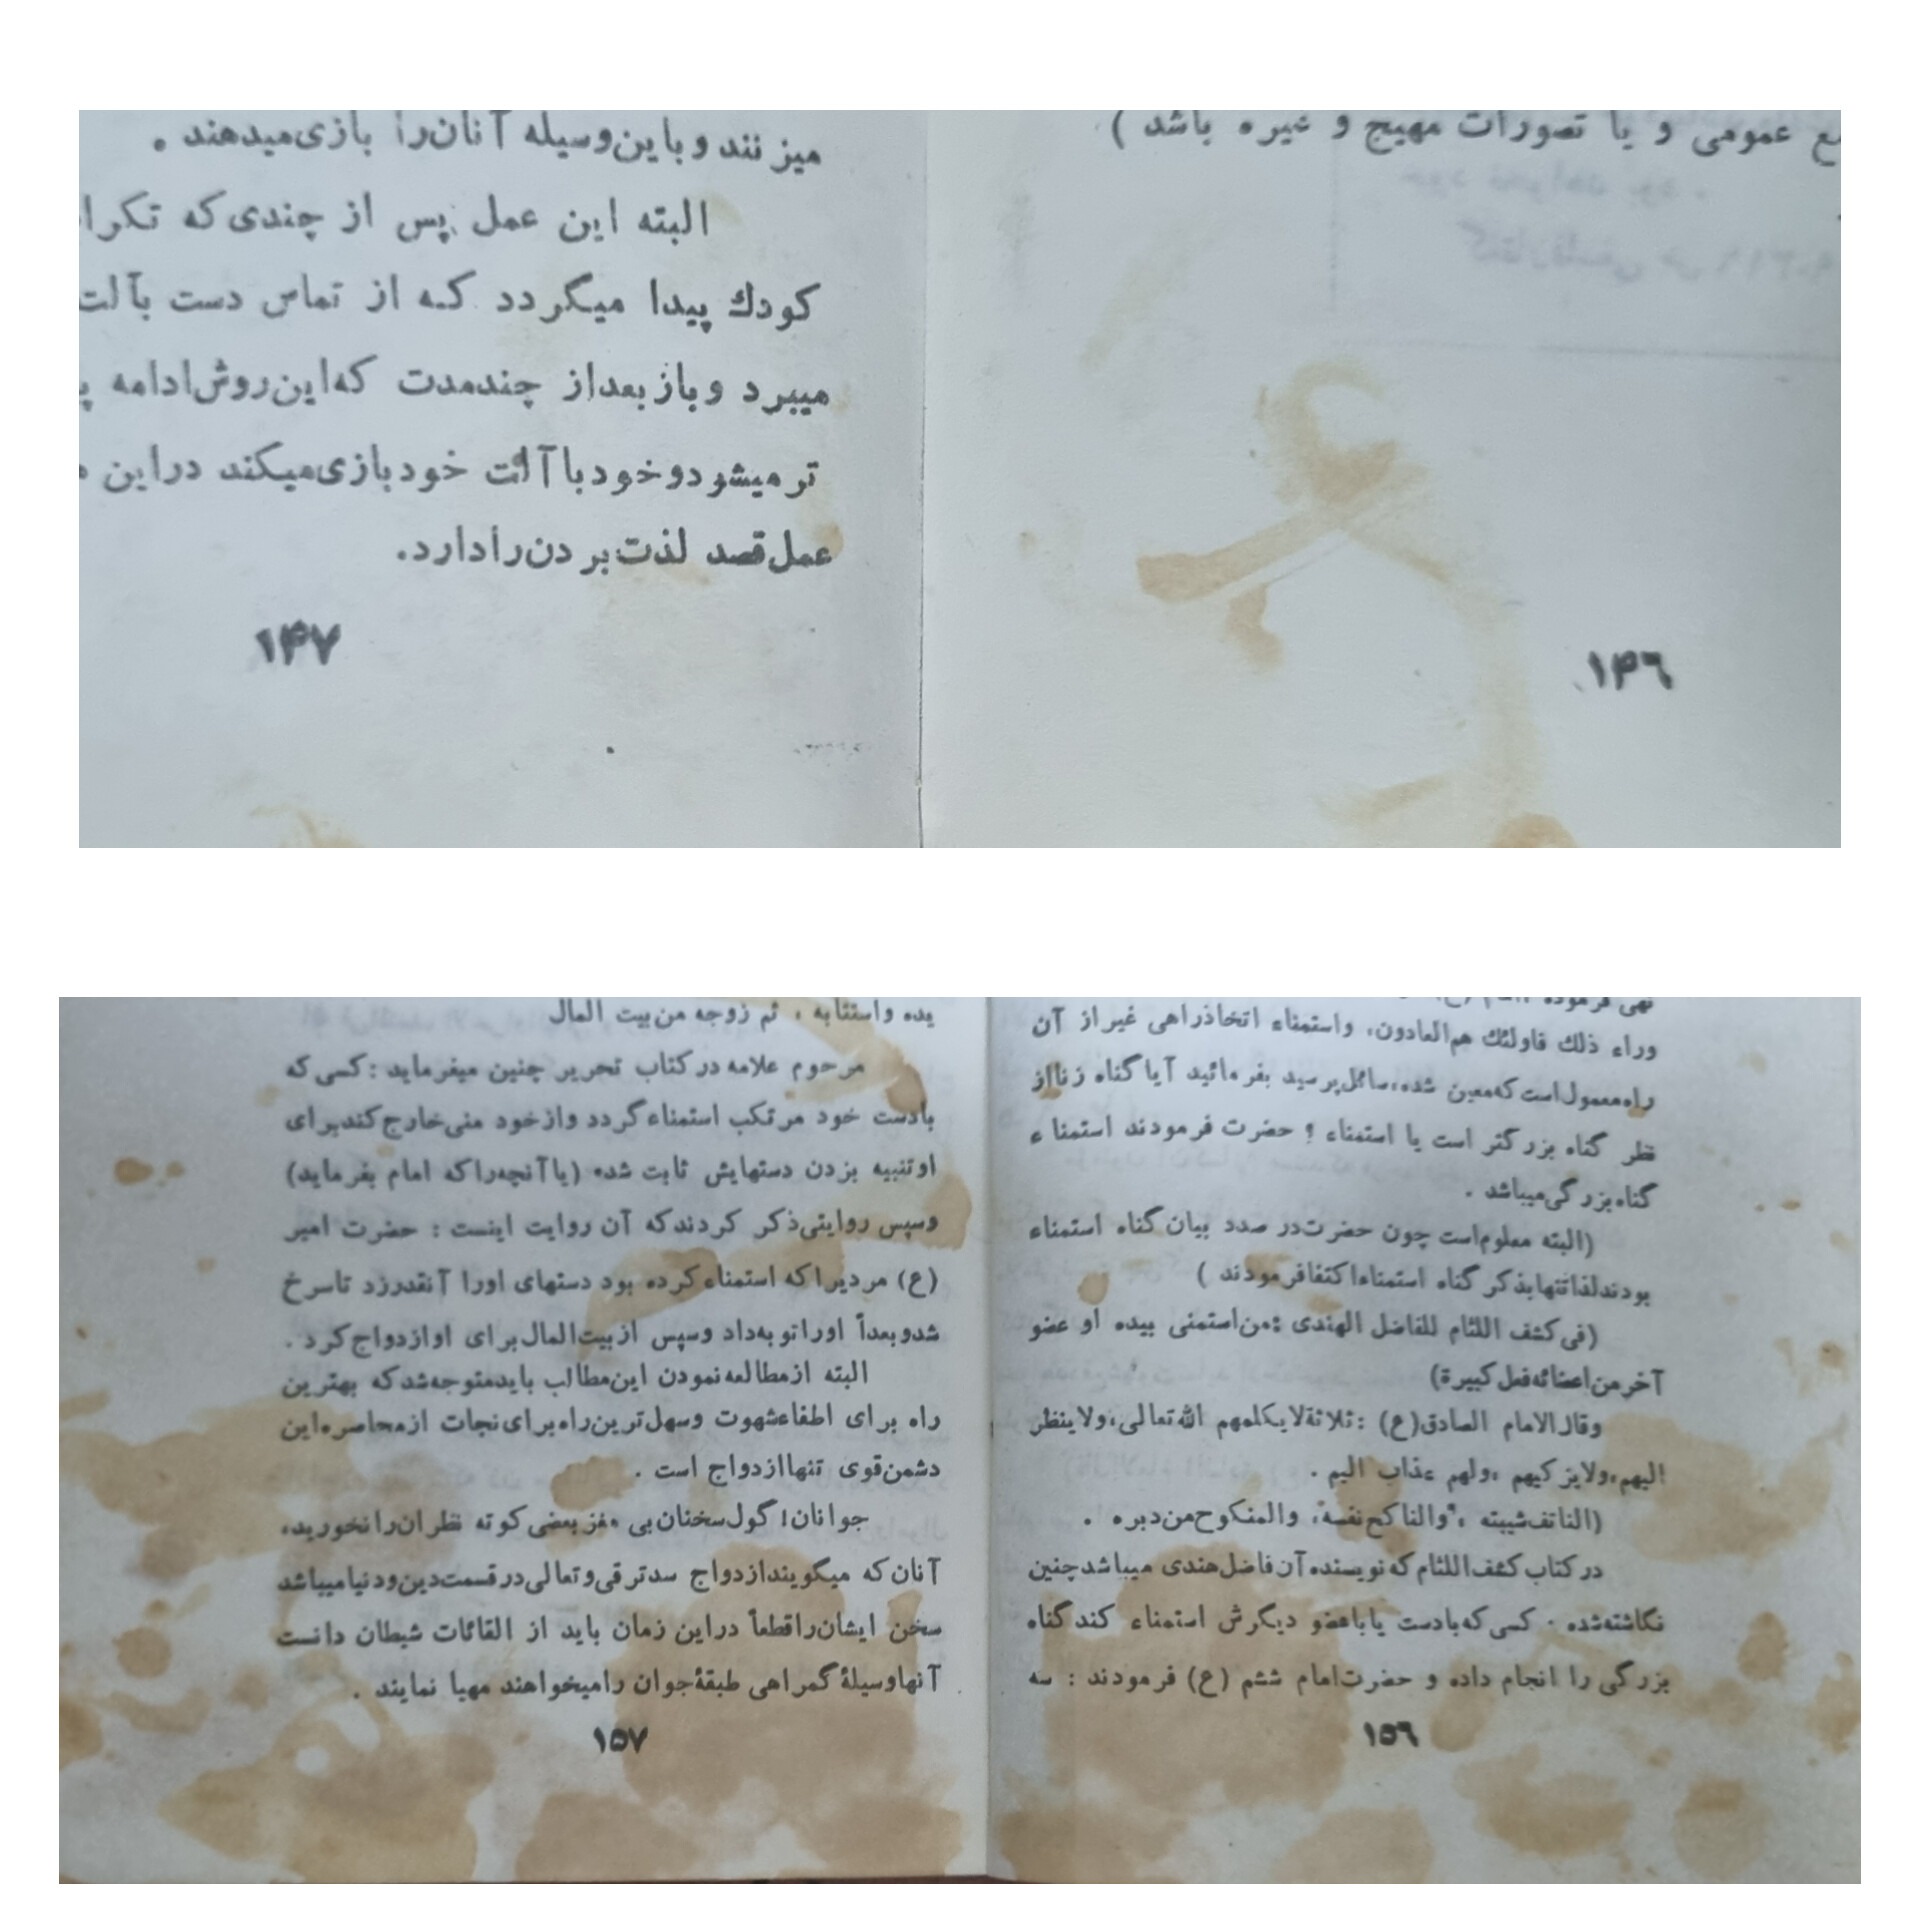 ع عمومی و یا تصورات مهیج و غیره باشد )
۱۴۶
میزنند و باین وسیله آنان را بازی میدهند .
البته این عمل پس از چندی که تکرا
کودك پیدا میگردد که از تماس دست بآلت
میبرد و باز بعد از چند مدت که این روش ادامه
تر میشود و خود با آلت خود بازی میکند در این
عمل قصد لذت بردن را دارد.
۱۴۷
نهی فرموده
وراء ذلك فاولئك هم العادون، واستمناء اتخاذ راهی غیر از آن
راه معمول است که معین شده، سائل پرسید بفرمائید آیا گناه زنا از
نظر گناه بزرگتر است یا استمناء ؟ حضرت فرمودند استمناء
گناه بزرگی میباشد .
(البته معلوم است چون حضرت در صدد بیان گناه استمناء
بودند لذا تنها بذکر گناه استمناء اکتفا فرمودند )
(فی کشف اللثام للفاضل الهندی : من استمنی بیده او عضو
آخر من اعضائه فعل کبیرة)
وقال الامام الصادق (ع) : ثلاثة لا یکلمهم الله تعالی، ولا ینظر
الیهم، ولا یزکیهم ، ولهم عذاب الیم .
(الناتف شیبته ، والناکح نفسه، والمنکوح من دبره .
در کتاب کشف اللثام که نویسنده آن فاضل هندی میباشد چنین
نگاشته شده . کسی که با دست یا با عضو دیگرش استمناء کند گناه
بزرگی را انجام داده و حضرت امام ششم (ع) فرمودند : سه
۱۵۶
یده واستتابه ، ثم زوجه من بیت المال
مرحوم علامه در کتاب تحریر چنین میفرماید : کسی که
با دست خود مرتکب استمناء گردد و از خود منی خارج کند برای
او تنبیه بزدن دستهایش ثابت شده (یا آنچه را که امام بفرماید)
وسپس روایتی ذکر کردند که آن روایت اینست : حضرت امیر
(ع) مردیرا که استمناء کرده بود دستهای اورا آنقدر زد تا سرخ
شد و بعداً اورا توبه داد وسپس از بیت المال برای او ازدواج کرد .
البته از مطالعه نمودن این مطالب باید متوجه شد که بهترین
راه برای اطفاء شهوت وسهل ترین راه برای نجات از محاصره این
دشمن قوی تنها ازدواج است .
جوانان! گول سخنان بی مغز بعضی کوته نظران را نخورید،
آنان که میگویند ازدواج سد ترقی و تعالی در قسمت دین و دنیا میباشد
سخن ایشان را قطعاً در این زمان باید از القائات شیطان دانست
آنها وسیلهٔ گمراهی طبقهٔ جوان را میخواهند مهیا نمایند .
۱۵۷